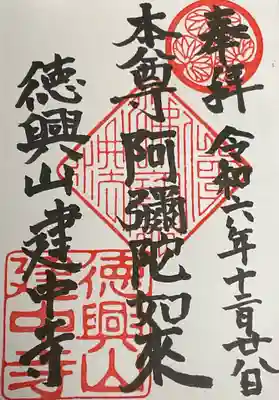 奉拜
令和六年十二月廿八日
本尊阿彌陀如來
徳興山建中寺
徳興山
建中寺